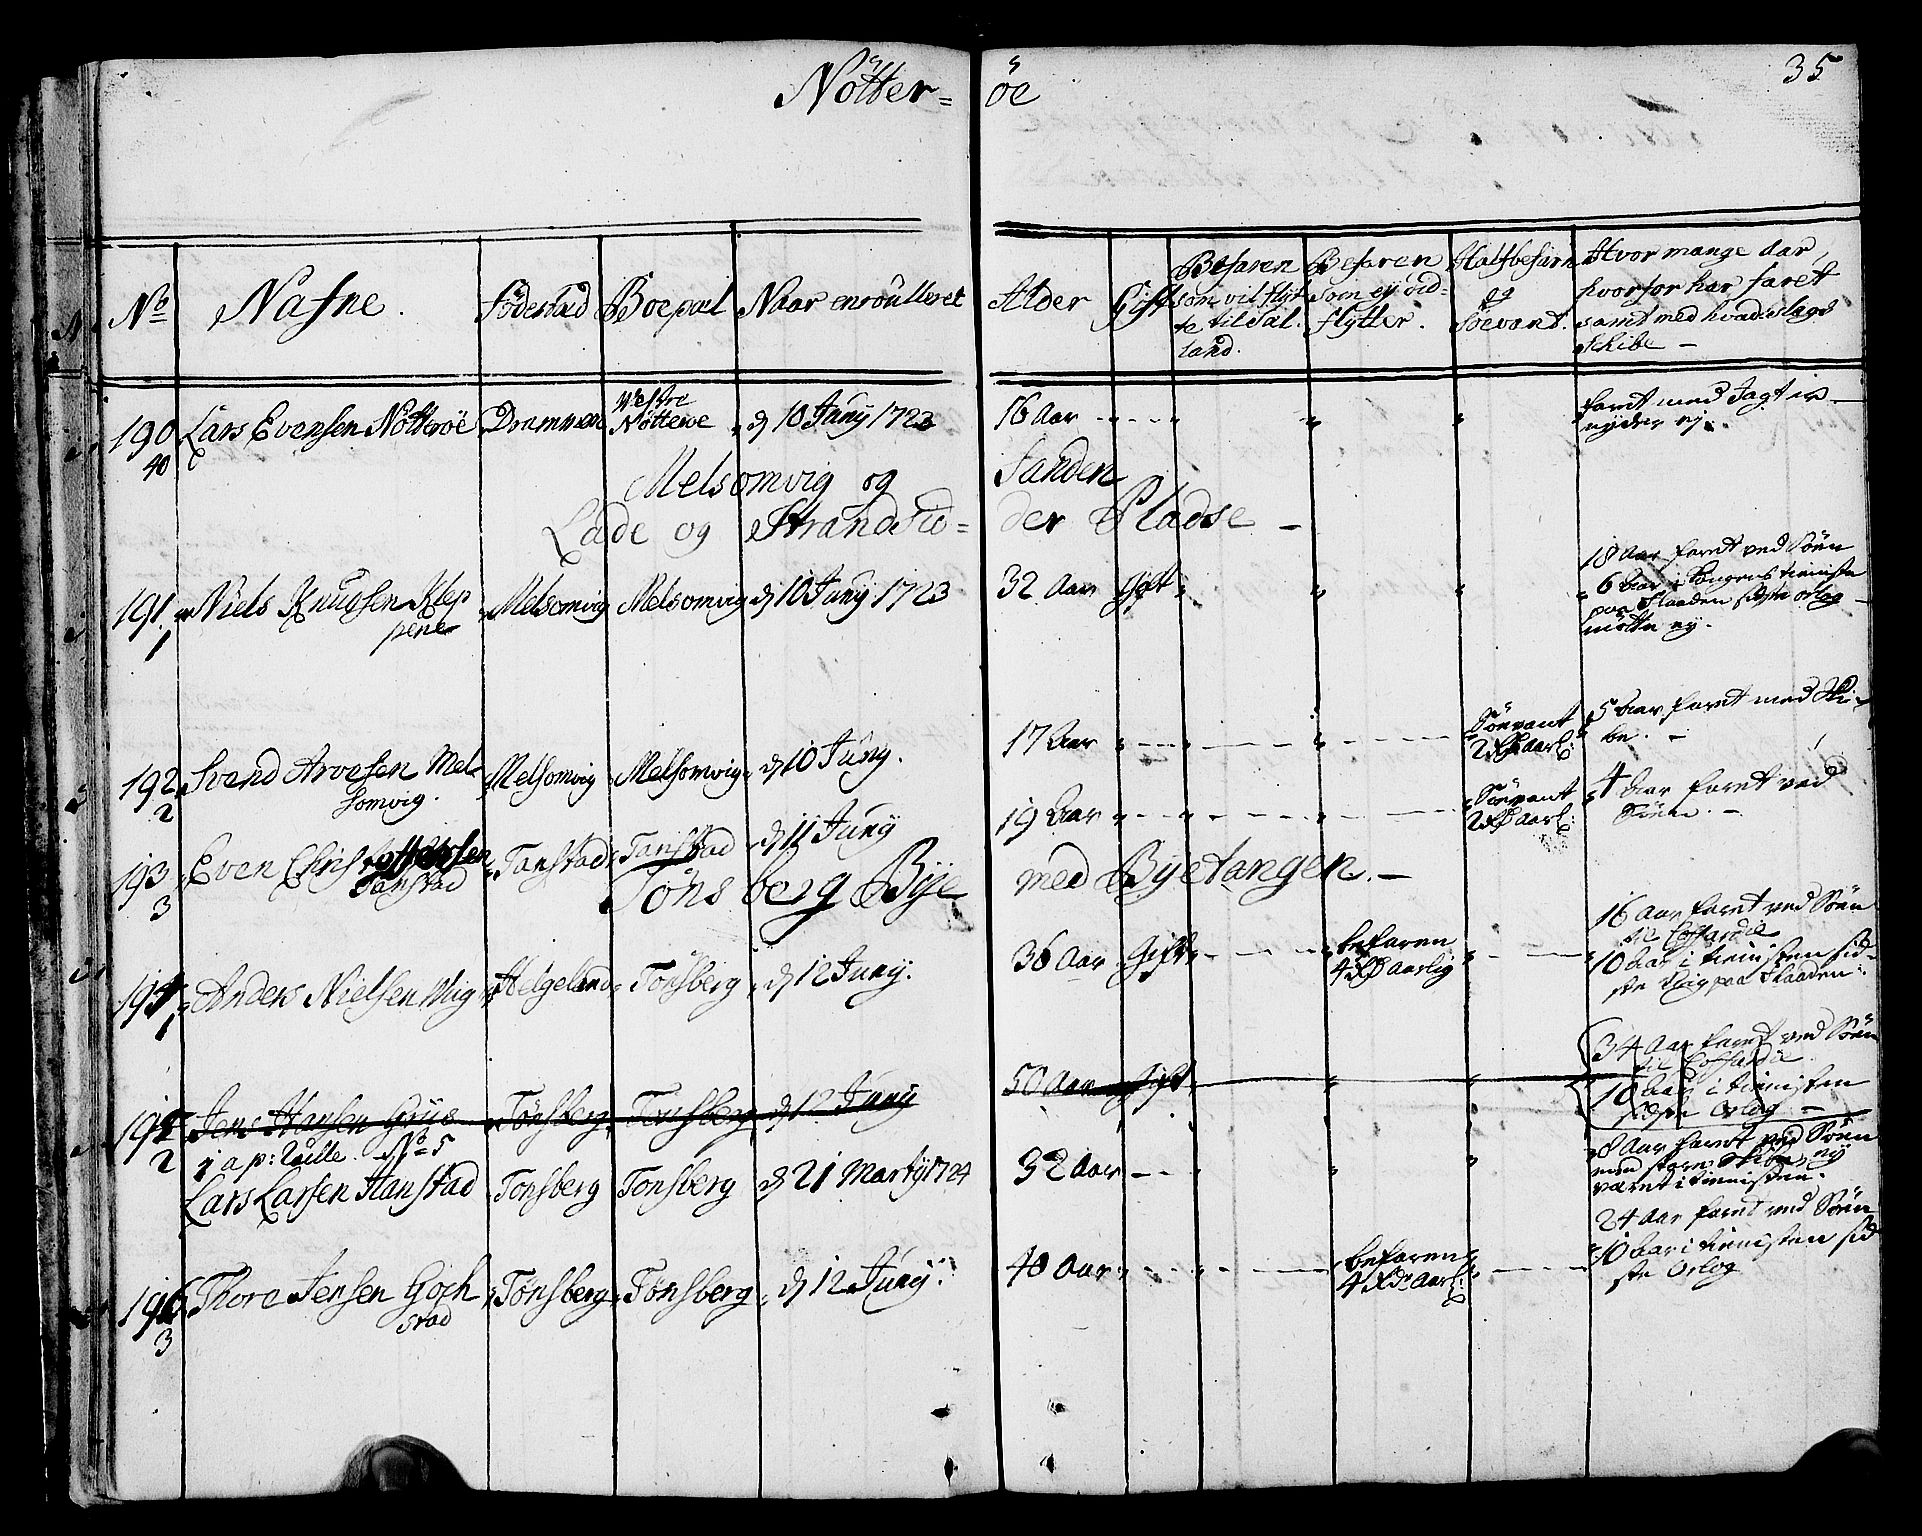 Nötter= öe
35
No Nafne. Föderstad Boepæl Naar enroulleret Alder Gift Befaren som vil flyt- te til Sæl- land. Befaren som ey vid- flytter. Halfbefarn og Söevant. Hvor mange Aar, hvorfor har faret samt med hvad slags Skibe –
190 Lars Evensen Nötteröe Drammen Vestre Nötteröe d 10 Juny 1723 16 Aar
faret med Jagter
nyder ey.
40
Melsomvig og Sanden
Lade og Strandsid= der Pladse –
191 Niels Knudsen Klep Melsomvig Melsomvig d 10 Juny 1723 32 Aar Gift
pene
1
18 Aar faret ved Söen
6 Aar i Kongens tieniste
paa Flaaden sidste orlog
mötte ey.
192 Svend Arvesen Mel Melsomvig Melsomvig d 10 Juny. 17 Aar Söevant 2 Rdr aarl:
somvig.
2
5 Aar faret med Ski-
be. –
193 Even Christophersen Tanstad Tanstad d 11 Juny 19 Aar Söevant 2 Rdr aarl:
Tanstad
3
4 Aar faret ved
Söen. –
Tönsberg Bÿe med Byetangen. –
194 Anders Nielsen Mig Helgeland Tönsberg d 12 Juny. 36 Aar Gift befaren 4 Rdr aarlig
1
16 Aar faret ved Söen
til Coffardie
10 Aar i tienisten sid-
ste Tog paa Flaaden.
195 Jens Hansen Grüs Tönsberg Tonsberg d 12 Juny 50 Aar Gift
2
34 Aar faret ved Söen
til Coffardi
10 Aar i tienisten
sidste Orlog –
j ap: Rulle No 5
Lars Larsen Hanstad Tonsberg Tonsberg d 21 Martÿ 1724 32 Aar
8 Aar faret ved Söen
med store Skibe, ey
været i tienisten.
196 Thore Jensen Goch Tönsberg Tönsberg d 12 Juny. 40 Aar befaren 4 Rdr aarl:
stad
3
24 Aar faret ved Söen
10 Aar i tienisten sid
ste Orlog